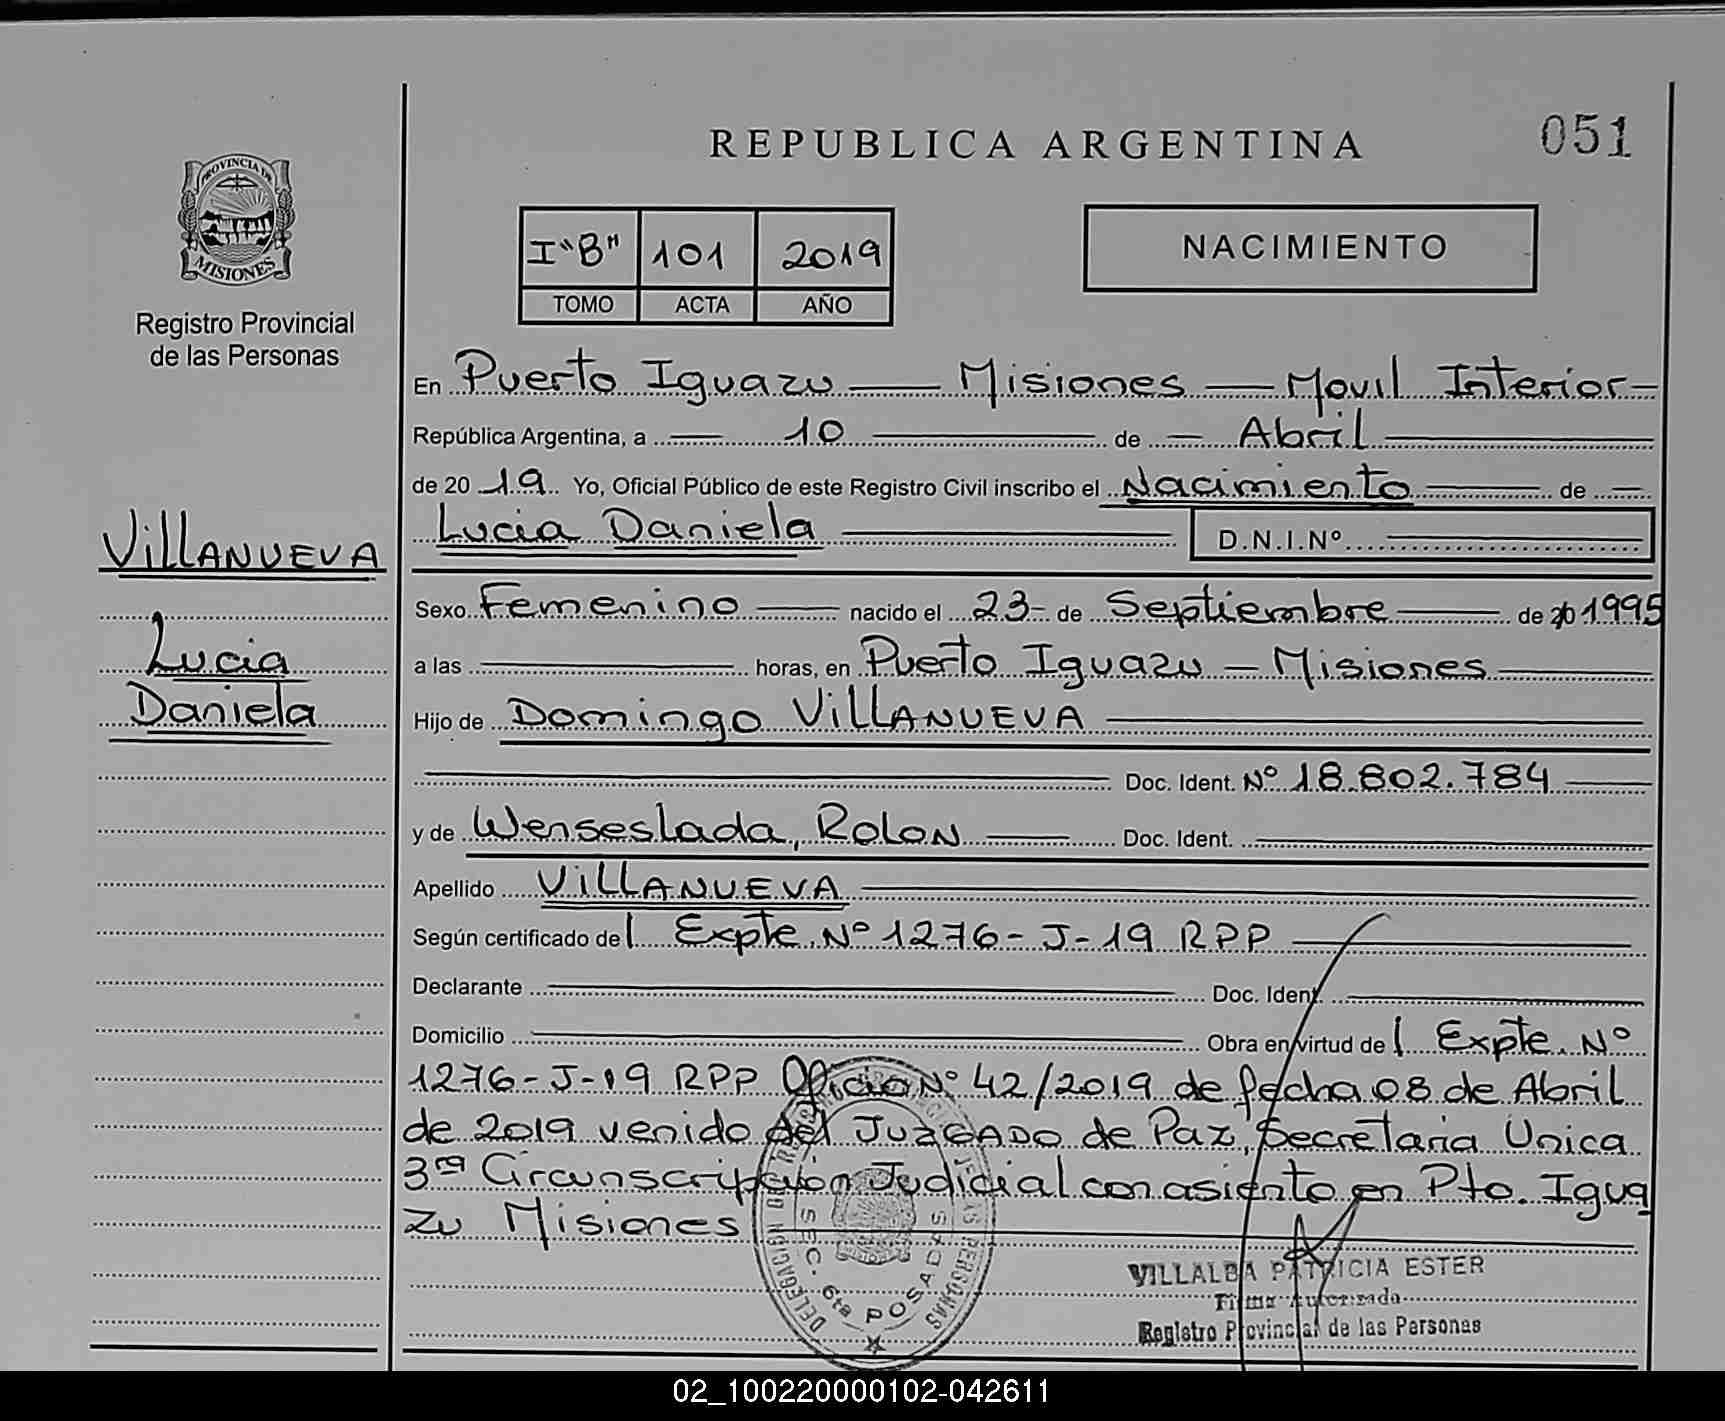 REPUBLICA ARGENTINA
051
PROVINCIA DE
MISIONES
Registro Provincial
de las Personas
I"B" 101 2019
TOMO ACTA AÑO
NACIMIENTO
En Puerto Iguazu — Misiones — Movil Interior —
República Argentina, a — 10 — de — Abril —
de 20 19 Yo, Oficial Público de este Registro Civil inscribo el Nacimiento — de —
Lucia Daniela — D.N.I.Nº —
VillANUEVA
Lucia
Daniela
Sexo Femenino — nacido el 23 - de Septiembre — de 20 1995
a las — horas, en Puerto Iguazu — Misiones —
Hijo de Domingo VillANUEVA —
— Doc. Ident. Nº 18.802.784 —
y de Wenseslada, ROLON — Doc. Ident. —
Apellido VILLANUEVA —
Según certificado del Expte. Nº 1276-J-19 RPP —
Declarante — Doc. Ident. —
Domicilio — Obra en virtud del Expte. Nº
1276-J-19 RPP Oficio Nº 42/2019 de fecha 08 de Abril
de 2019 venido del JUZGADO de Paz, Secretaria Unica
3ra Circunscripcion Judicial con asiento en Pto. Igua
zu Misiones —
SEC. 6ta POSADAS
VILLALBA PATRICIA ESTER
Firma Autorizada
Registro Provincial de las Personas
02_100220000102-042611